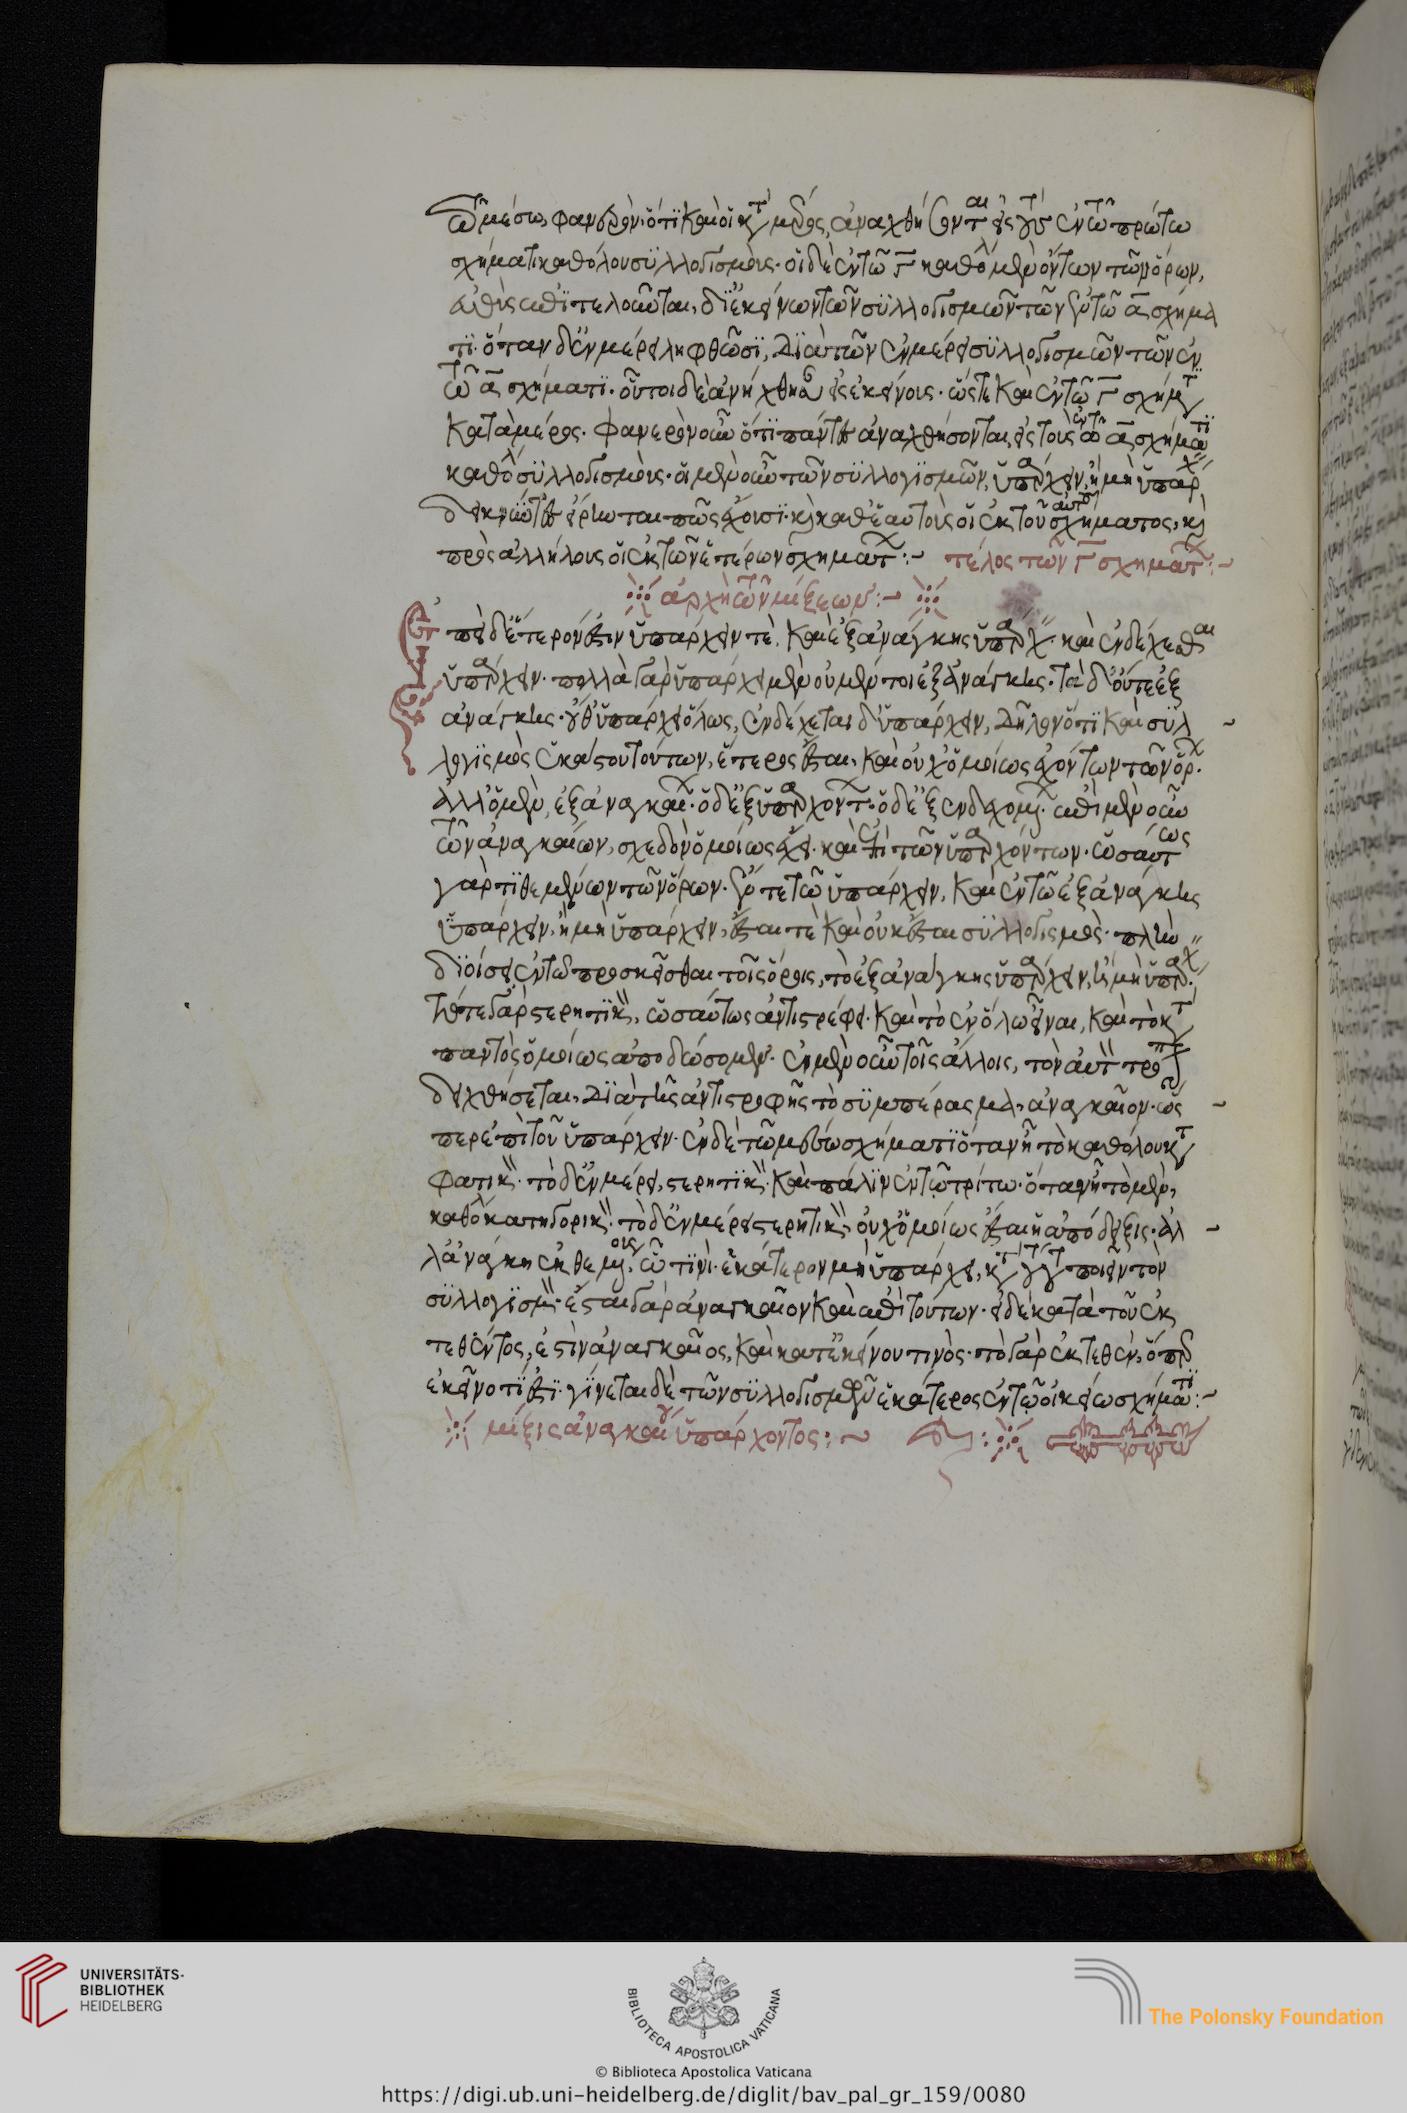 τῶ μέσω, φανερὸν ὅτι καὶ οἱ κτ μέρος, ἀναχθήσονται εἰς τ ἐν τῶ πρώτω
σχήματι καθόλου συλλογισμούς. οἱ δὲ ἐν τῶ Γ καθόλ μὲν ὄντων τῶν ὅρων,
εὐθὺς ἐπιτελοῦνται, δι ἐκείνων τῶν συλλογισμῶν τῶν ἐν τῶ α σχήμα
τι. ὅταν δ ἐν μέρει ληφθῶσι, διὰ τῶν ἐν μέρει συλλογισμῶν τῶν ἐν
τῶ α σχήματι. οὗτοι δὲ ἀνήχθησαν εἰς ἐκείνους. ὥστε καὶ ἐν τῶ Γ σχήμτ
κατὰ μέρος. φανερὸν οὖν ὅτι πάντες ἀναχθήσονται εἰς τοὺς ἐν τῶ α σχήματι
καθόλ συλλογισμούς. οἱ μὲν οὖν τῶν συλλογισμῶν, ὑπάρχειν, ἢ μὴ ὑπάρχ
δεικνύντες εἴρηνται πῶς ἔχουσι. καὶ καθ ἑαυτοὺς οἱ ἐκ τοῦ αὐτοῦ σχήματος, καὶ
πρὸς ἀλλήλους οἱ ἐκ τῶν ἑτέρων σχημάτ :~ τέλος τῶν Γ σχημάτ :~
ἀρχὴ τῶν μίξεων :~
Ἐπεὶ δ ἕτερόν ἐστιν ὑπάρχειν τὲ, καὶ ἐξ ἀνάγκης ὑπάρχ. καὶ ἐνδέχεσθαι
ὑπάρχειν. πολλὰ γὰρ ὑπάρχει μὲν οὐ μέν τοι ἐξ ἀνάγκης. τὰ δ οὔτε ἐξ
ἀνάγκης. οὔθ ὑπάρχει ὅλως, ἐνδέχεται δ ὑπάρχειν, δῆλον ὅτι καὶ συλ
λογισμὸς ἑκάστου τούτων, ἕτερος ἔσται, καὶ οὐχ ὁμοίως ἐχόντων τῶν ὅρ.
ἀλλ ὁ μὲν, ἐξ ἀναγκαί. ὁ δ ἐξ ὑπαρχόντ. ὁ δ ἐξ ἐνδεχομ. ἐπὶ μὲν οὖν
τῶν ἀναγκαίων, σχεδὸν ὁμοίως ἔχει. καὶ ἐπὶ τῶν ὑπαρχόντων. ὡσαύτως
γὰρ τιθεμένων τῶν ὅρων. ἔν τε τῶ ὑπάρχειν, καὶ ἐν τῶ ἐξ ἀνάγκης
ὑπάρχειν, ἢ μὴ ὑπάρχειν, ἔσται τὲ καὶ οὐκ ἔσται συλλογισμὸς. πλὴν
διοίσει ἐν τῶ προσκεῖσθαι τοῖς ὅροις, τὸ ἐξ ἀνάγκης ὑπάρχειν, ἢ μὴ ὑπάρχ.
τότε γὰρ στερητικ, ὡσαύτως ἀντιστρέφει. καὶ τὸ ἐν ὅλω εἶναι, καὶ τὸ κτ
παντὸς ὁμοίως ἀποδώσομεν. ἐν μὲν οὖν τοῖς ἄλλοις, τὸν αὐτ τρόπ
δειχθήσεται, διὰ τῆς ἀντιστροφῆς τὸ συμπέρασμα, ἀναγκαῖον. ὥσ
περ ἐπὶ τοῦ ὑπάρχειν. ἐν δὲ τῶ μέσω σχήματι ὅταν ἦ τὸ καθόλου κτ
φατικ. τὸ δ ἐν μέρει, στερητικ. καὶ πάλιν ἐν τῶ τρίτω. ὅταν ἦ τὸ μὲν,
καθόλ κατηγορικ. τὸ δ ἐν μέρει στερητικ, οὐχ ὁμοίως ἔσται ἡ ἀπόδειξις. ἀλ
λ ἀνάγκη ἐκθεμένους, ὧ τινὶ. ἑκάτερον μὴ ὑπάρχει, κτ τ ποιεῖν τὸν
συλλογισμ. ἔσται γὰρ ἀναγκαῖον καὶ ἐπὶ τούτων. εἰ δὲ κατὰ τοῦ ἐκ
τεθέντος, ἐστὶν ἀναγκαῖος, καὶ κατ ἐκείνου τινὸς. τὸ γὰρ ἐκτεθὲν, ὅπερ
ἐκεῖνό τι ἐστι. γίνεται δὲ τῶν συλλογισμῶν ἑκάτερος ἐν τῶ οἰκείω σχήματι :~
μίξις ἀναγκαίου ὑπάρχοντος :~
UNIVERSITÄTS-
BIBLIOTHEK
HEIDELBERG
BIBLIOTECA APOSTOLICA VATICANA
The Polonsky Foundation
© Biblioteca Apostolica Vaticana
https://digi.ub.uni-heidelberg.de/diglit/bav_pal_gr_159/0080